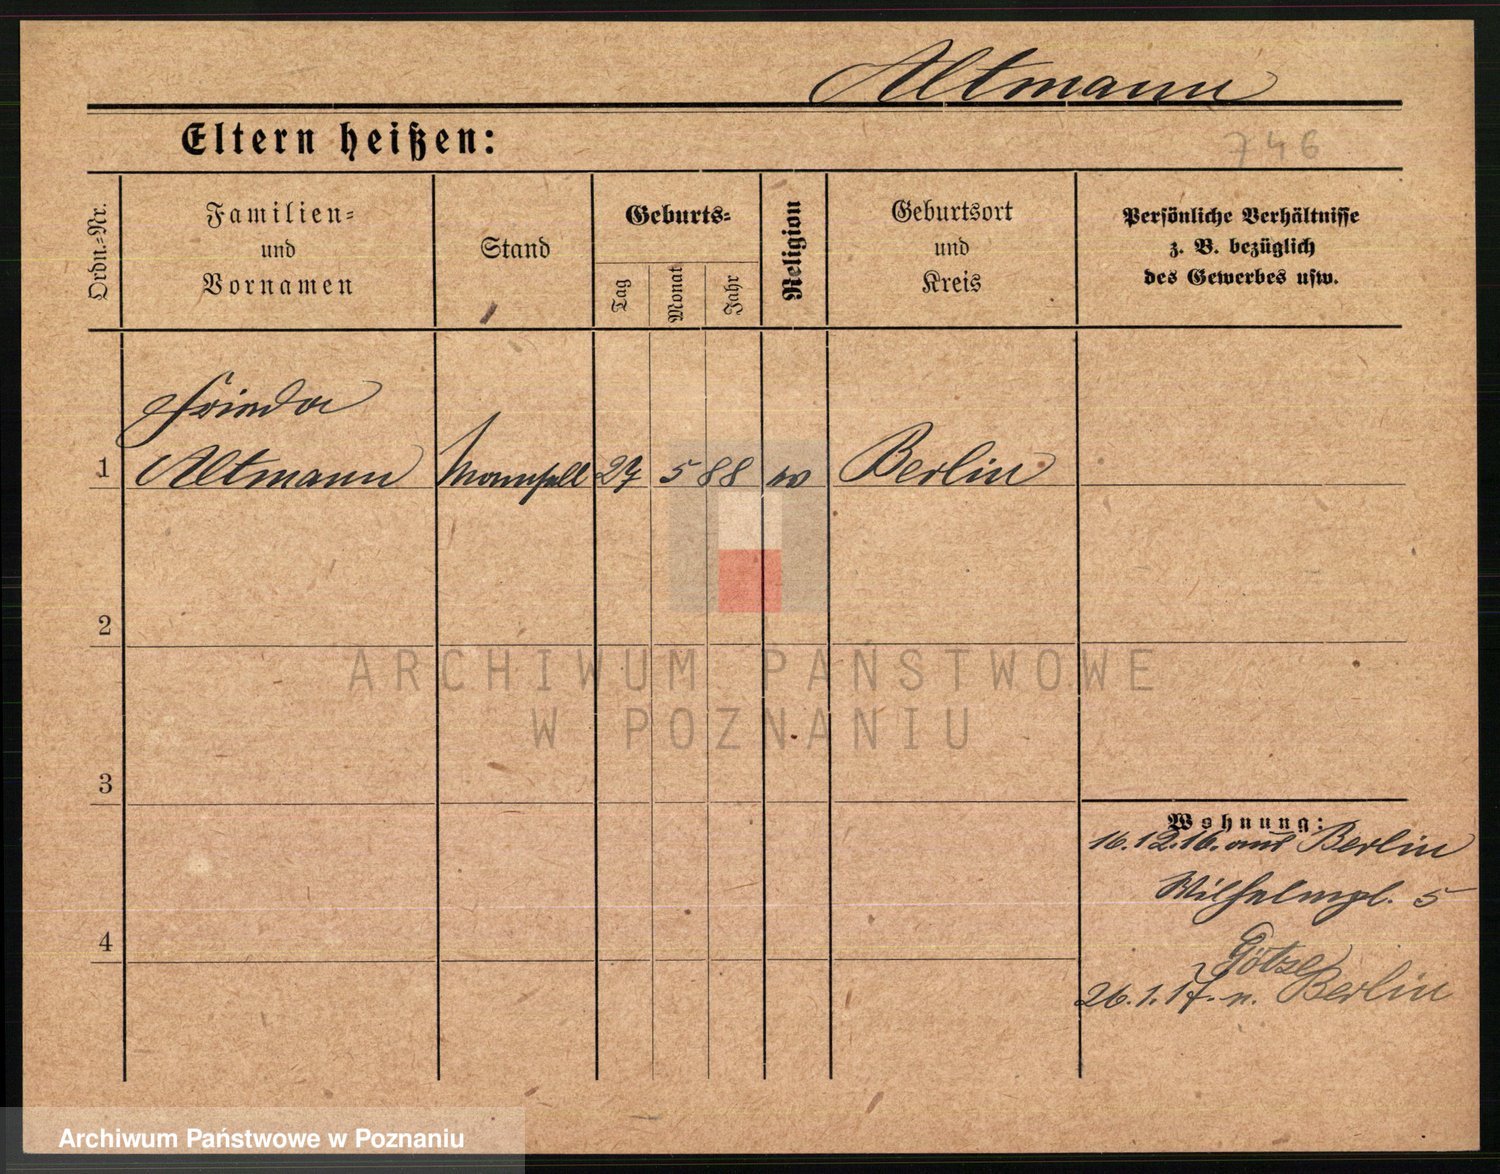 Altmann
Eltern heißen:
746
Ordn.=Nr.
Familien=
und
Vornamen
Stand
Geburts=
Tag
Monat
Jahr
Religion
Geburtsort
und
Kreis
Persönliche Verhältnisse
z. B. bezüglich
des Gewerbes usw.
Frieda
1 Altmann Mamsell 27 5 88 Berlin
2
3
4
Wohnung:
16.12.16. aus Berlin
Wilhelmpl. 5
Götze
26.1.17. n. Berlin
ARCHIWUM PAŃSTWOWE
W POZNANIU
Archiwum Państwowe w Poznaniu